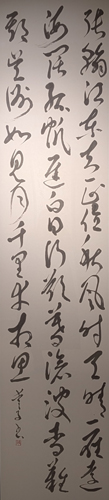 張翰江東去正值秋風時天晴一雁遠
海闊孤帆遲白日行欲暮滄波杳難
期吳洲如見月千里幸相思